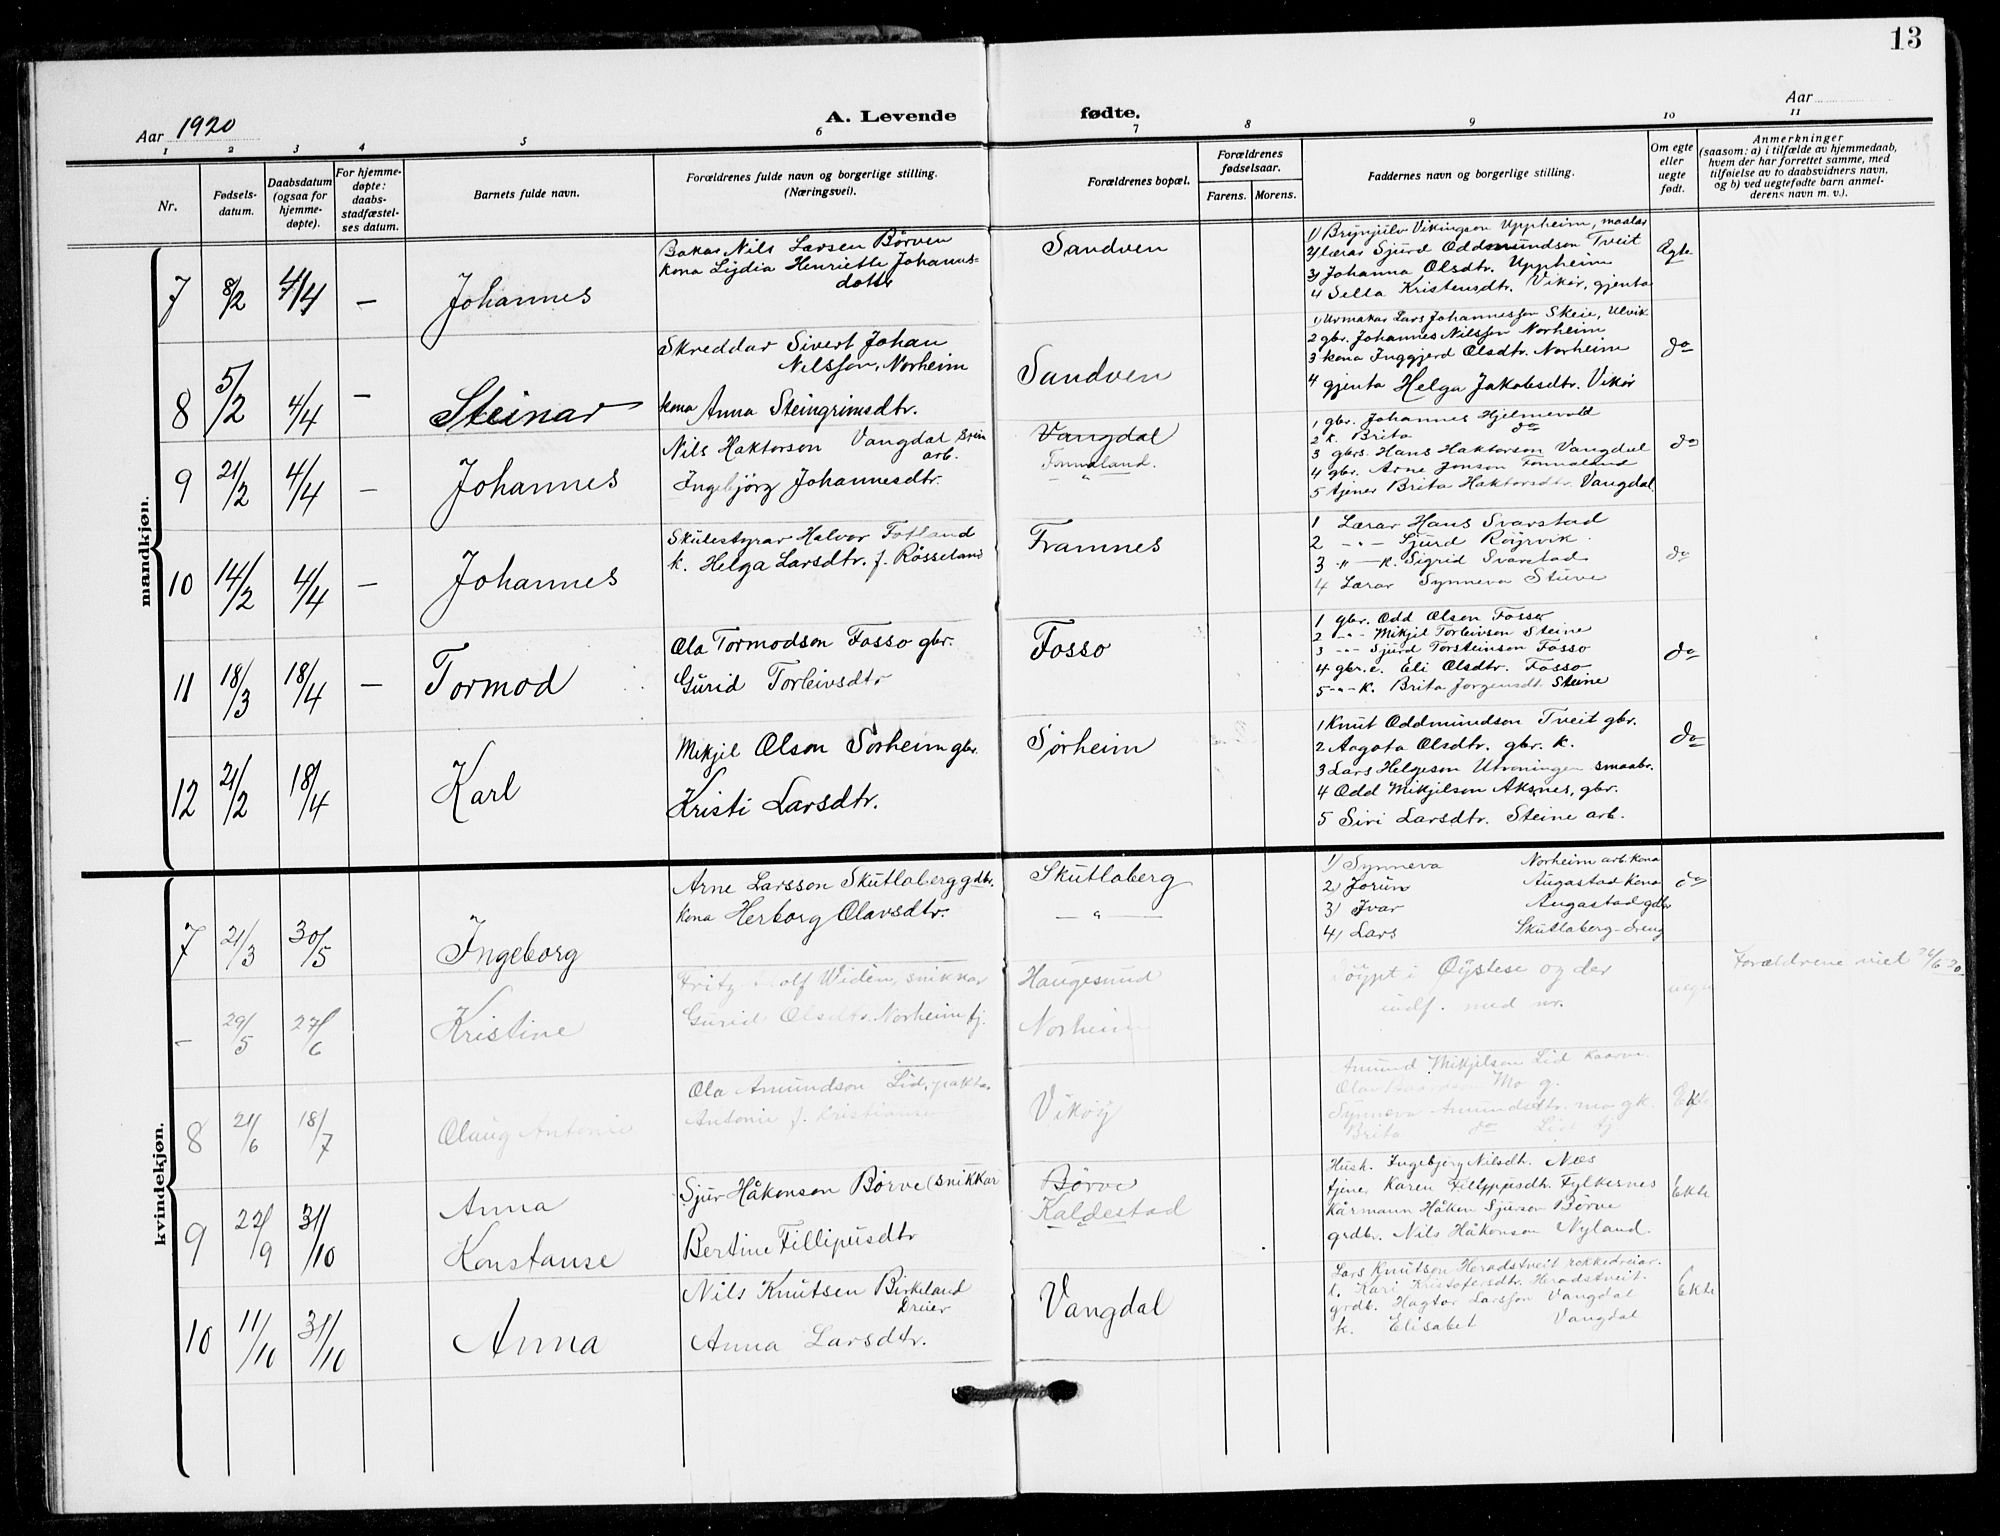 13
Aar 1920
A. Levende fødte.
Aar
1 2 3 4 5 6 7 8 9 10 11
Nr.
Fødsels-
datum.
Daabsdatum
(ogsaa for
hjemme-
døpte).
For hjemme-
døpte:
daabs-
stadfæstel-
ses datum.
Barnets fulde navn.
Forældrenes fulde navn og borgerlige stilling.
(Næringsvei).
Forældrenes bopæl.
Forældrenes
fødselsaar.
Farens. Morens.
Faddernes navn og borgerlige stilling.
Om egte
eller
uegte
født.
Anmerkninger
(saasom: a) i tilfælde av hjemmedaab,
hvem der har forrettet samme, med
tilføielse av to daabsvidners navn,
og b) ved uegtefødte barn anmel-
derens navn m. v.).
mandkjøn.
7 8/2 4/4 — Johannes
Bakar Nils Larsen Börven
kona Lydia Henriette Johannes-
dotter
Sandven
1) Brynjulv Vikingson Uppheim, maalar
2) Lærar Sjurd Oddmundson Tveit
3) Johanna Olsdtr. Uppheim
4 Sella Kristensdtr. Vikör, gjenta
Ægte
8 5/2 4/4 — Steinar
Skreddar Sivert Johan
Nilsson, Norheim
kona Anna Steingrimsdtr.
Sandven
1) Urmakar Lars Johannesson Skeie, Ulvik
2 gbr. Johannes Nilsson Norheim
3 kona Inggjerd Olsdtr. Norheim
4 gjenta Helga Jakobsdtr. Vikör
do
9 21/2 4/4 — Johannes
Nils Haktorson Vangdal
arb.
Ingebjörg Johannesdtr.
Vangdal
— " —
1 gbr. Johannes Hjelmevold
2 k. Brita do
3 gbrs. Hans Haktorson Vangdal
4 gbr. Arne Jonson
5 tjener Brita Haktorsdtr. Vangdal
do
10 14/2 4/4 — Johannes
Skulestyrar Halvor Fotland
k. Helga Larsdtr. f. Rösseland
Framnes
1 Lærar Hans Svarstad
2 — " — Sjurd Röyrvik
3 — " — k. Sigrid Svarstad
4 Lærar Synneva Stuve
do
11 18/3 18/4 — Tormod
Ola Tormodson Fosso gbr.
Gurid Torleivsdtr
Fosso
1 gbr. Odd Olsen Fosso
2 — " — Mikjil Torleivson Steine
3 — " — Sjurd Torsteinson Fosso
4 gbr.e. Eli Olsdtr. Fosso
5 — " — k. Brita Jorgensdt. Steine
do
12 21/2 18/4 Karl
Mikjil Olson Sörheim gbr.
Kristi Larsdtr.
Sørheim
1 Knut Oddmundson Tveit gbr.
2 Aagota Olsdtr. gbr. k.
3 Lars Helgeson Utroningen smaabr.
4 Odd Mikjelson Aksnes, gbr.
5 Siri Larsdtr. Steine arb.
do
kvindekjøn.
7 21/3 30/5 Ingeborg
Arne Larsson Skutlaberg gdbr.
kona Herborg Olavsdtr.
Skutlaberg
— " —
1) Synneva Norheim arb. kona
2) Jorun Augastad kona
3) Ivar Augastad gdbr
4) Lars Skutlaberg-dreng
do
- 29/5 27/6 Kristine
Fritz Widen, snikkar
Gurid Olsdtr. Norheim tj.
Haugesund
Norheim
Döypt i Öystese og der
indf. med nr.
uegte
Forældrene viet 26/6 20
8 21/6 18/7 Olaug Antonie
Ola Amundson Lid,
Antonie f. Kristiansen
Vikøy
Amund Mikjelson Lid
Olav Mo g.
Synneva Amundsdtr. Mo gk.
Brita do Lid tj
Ekte
9 22/9 31/10 Anna
Konstanse
Sjur Håkonson Börve (snikkar
Bertine Fillipusdtr
Børve
Kaldestad
Hush. Ingebjørg Nilsdtr. Næs
tjene. Karen Fillippusdtr. Fylkesnes
Kårmann Håken Sjurson Børve
grdbr. Nils Håkonson Nyland.
Ekte
10 11/10 31/10 Anna
Nils Knutsen Birkeland
Dreier
Anna Larsdtr.
Vangdal
Lars Knutson Heradstveit rokkedreiar.
t. Kari Kristofersdtr. Heradstveit.
grdb. Hagtor Larsson Vangdal
k. Elisabet Vangdal
Ekte